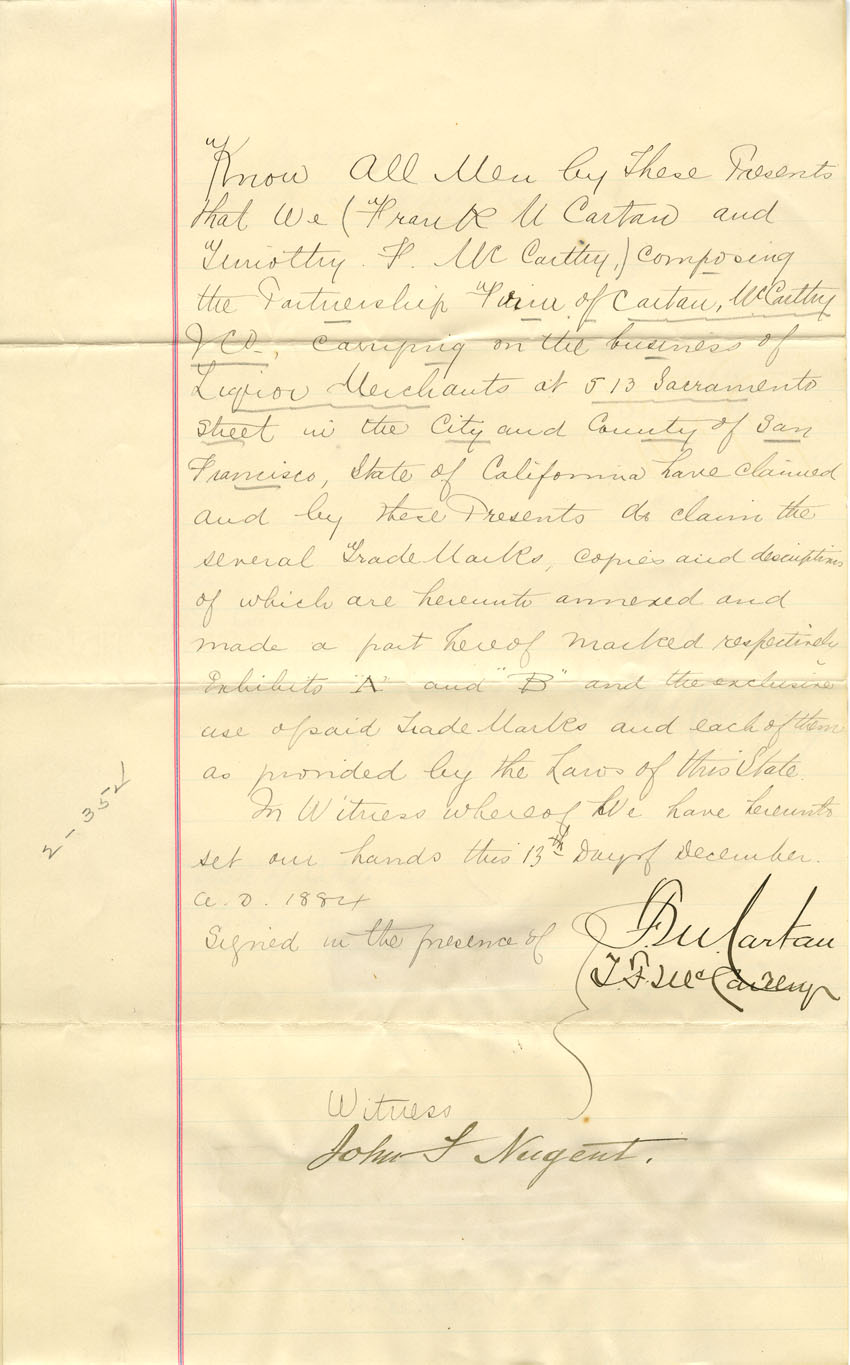 Know All Men by These Presents
that We (Frank M Cartan and
Timothy. F. McCarthy,) composing
the Partnership Firm of Cartan, McCarthy
& Co., Carrying on the business of
Liquior Merchants at 513 Sacramento
Street in the City and County of San
Francisco, State of California have claimed
and by these Presents do claim the
several Trade Marks, copies and descriptions
of which are hereunto annexed and
made a part hereof marked respectively
Exhibits "A" and "B" and the exclusive
use of said Trade Marks and each of them
as provided by the Laws of this State.
In Witness whereof We have hereunto
set our hands this 13th Day of December.
A. D. 1884
Signed in the presence of
F. M. Cartan
T. F. McCarthy
Witness
John F Nugent.
2-352